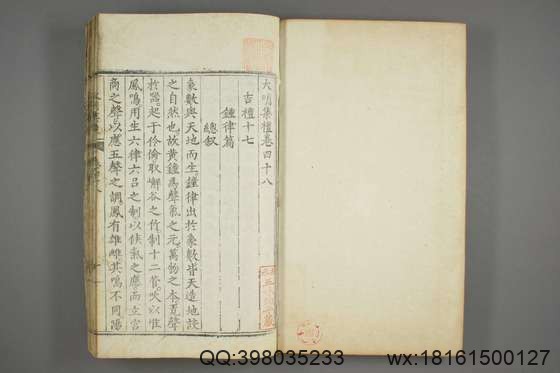 大明集禮卷四十八
吉禮十七
鍾律篇
總叙
象數與天地而生鍾律出於象數皆天造地設
之自然也故黃鍾爲聲氣之元萬物之本
於
起于伶倫取嶰谷之竹制十二管吹以惟
鳳鳴用生六律六呂之制以候氣之應而立宮
商之聲以應五聲之調鳳有雄雌其鳴不同陽
QQ:398035233 wx:18161500127